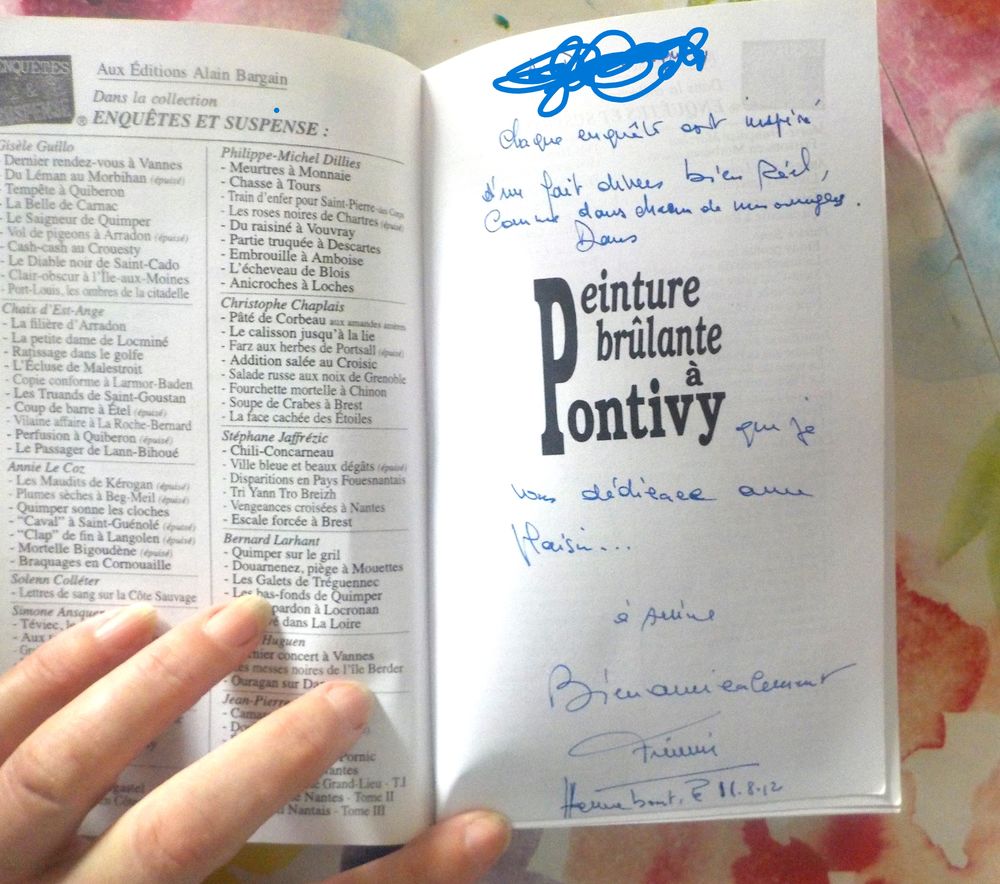 ENQUÊTES
&
Aux Éditions Alain Bargain
Dans la collection
® ENQUÊTES ET SUSPENSE :
Gisèle Guillo
- Dernier rendez-vous à Vannes
- Du Léman au Morbihan (épuisé)
- Tempête à Quiberon
- La Belle de Carnac
- Le Saigneur de Quimper
- Vol de pigeons à Arradon (épuisé)
- Cash-cash au Crouesty
- Le Diable noir de Saint-Cado
- Clair-obscur à l'Île-aux-Moines
- Port-Louis, les ombres de la citadelle
Chaix d'Est-Ange
- La filière d'Arradon
- La petite dame de Locminé
- Ratissage dans le golfe
- L'Écluse de Malestroit
- Copie conforme à Larmor-Baden
- Les Truands de Saint-Goustan
- Coup de barre à Étel (épuisé)
- Vilaine affaire à La Roche-Bernard
- Perfusion à Quiberon (épuisé)
- Le Passager de Lann-Bihoué
Annie Le Coz
- Les Maudits de Kérogan (épuisé)
- Plumes sèches à Beg-Meil (épuisé)
- Quimper sonne les cloches
- "Caval" à Saint-Guénolé (épuisé)
- "Clap" de fin à Langolen (épuisé)
- Mortelle Bigoudène (épuisé)
- Braquages en Cornouaille
Solenn Colléter
- Lettres de sang sur la Côte Sauvage
Simone Ansquer
- Téviec, le
- Aux
Philippe-Michel Dillies
- Meurtres à Monnaie
- Chasse à Tours
- Train d'enfer pour Saint-Pierre-des-Corps
- Les roses noires de Chartres (épuisé)
- Du raisiné à Vouvray
- Partie truquée à Descartes
- Embrouille à Amboise
- L'écheveau de Blois
- Anicroches à Loches
Christophe Chaplais
- Pâté de Corbeau aux amandes amères
- Le calisson jusqu'à la lie
- Farz aux herbes de Portsall (épuisé)
- Addition salée au Croisic
- Salade russe aux noix de Grenoble
- Fourchette mortelle à Chinon
- Soupe de Crabes à Brest
- La face cachée des Étoiles
Stéphane Jaffrézic
- Chili-Concarneau
- Ville bleue et beaux dégâts (épuisé)
- Disparitions en Pays Fouesnantais
- Tri Yann Tro Breizh
- Vengeances croisées à Nantes
- Escale forcée à Brest
Bernard Larhant
- Quimper sur le gril
- Douarnenez, piège à Mouettes
- Les Galets de Tréguennec
- Les bas-fonds de Quimper
pardon à Locronan
dans La Loire
Huguen
nier concert à Vannes
es messes noires de l'île Berder
- Ouragan sur
Jean-Pierre
Pornic
antes
Grand-Lieu - T.I
Nantes - Tome II
Nantais - Tome III
Chaque enquête est inspirée
d'un fait divers bien réel,
Comme dans chacun de mes ouvrages.
Dans
Peinture
brûlante
à
Pontivy
que je
vous dédicace avec
Plaisir...
à
Bien amicalement
Hennebont, le 11.8.12